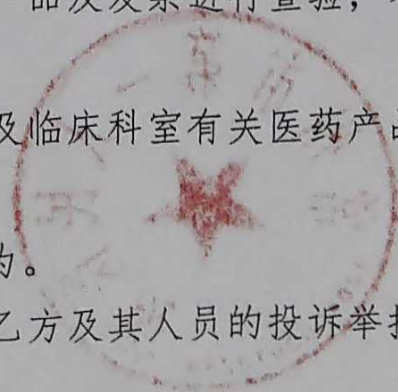 品及发票进行查验，
及临床科室有关医药产品
为。
乙方及其人员的投诉举报